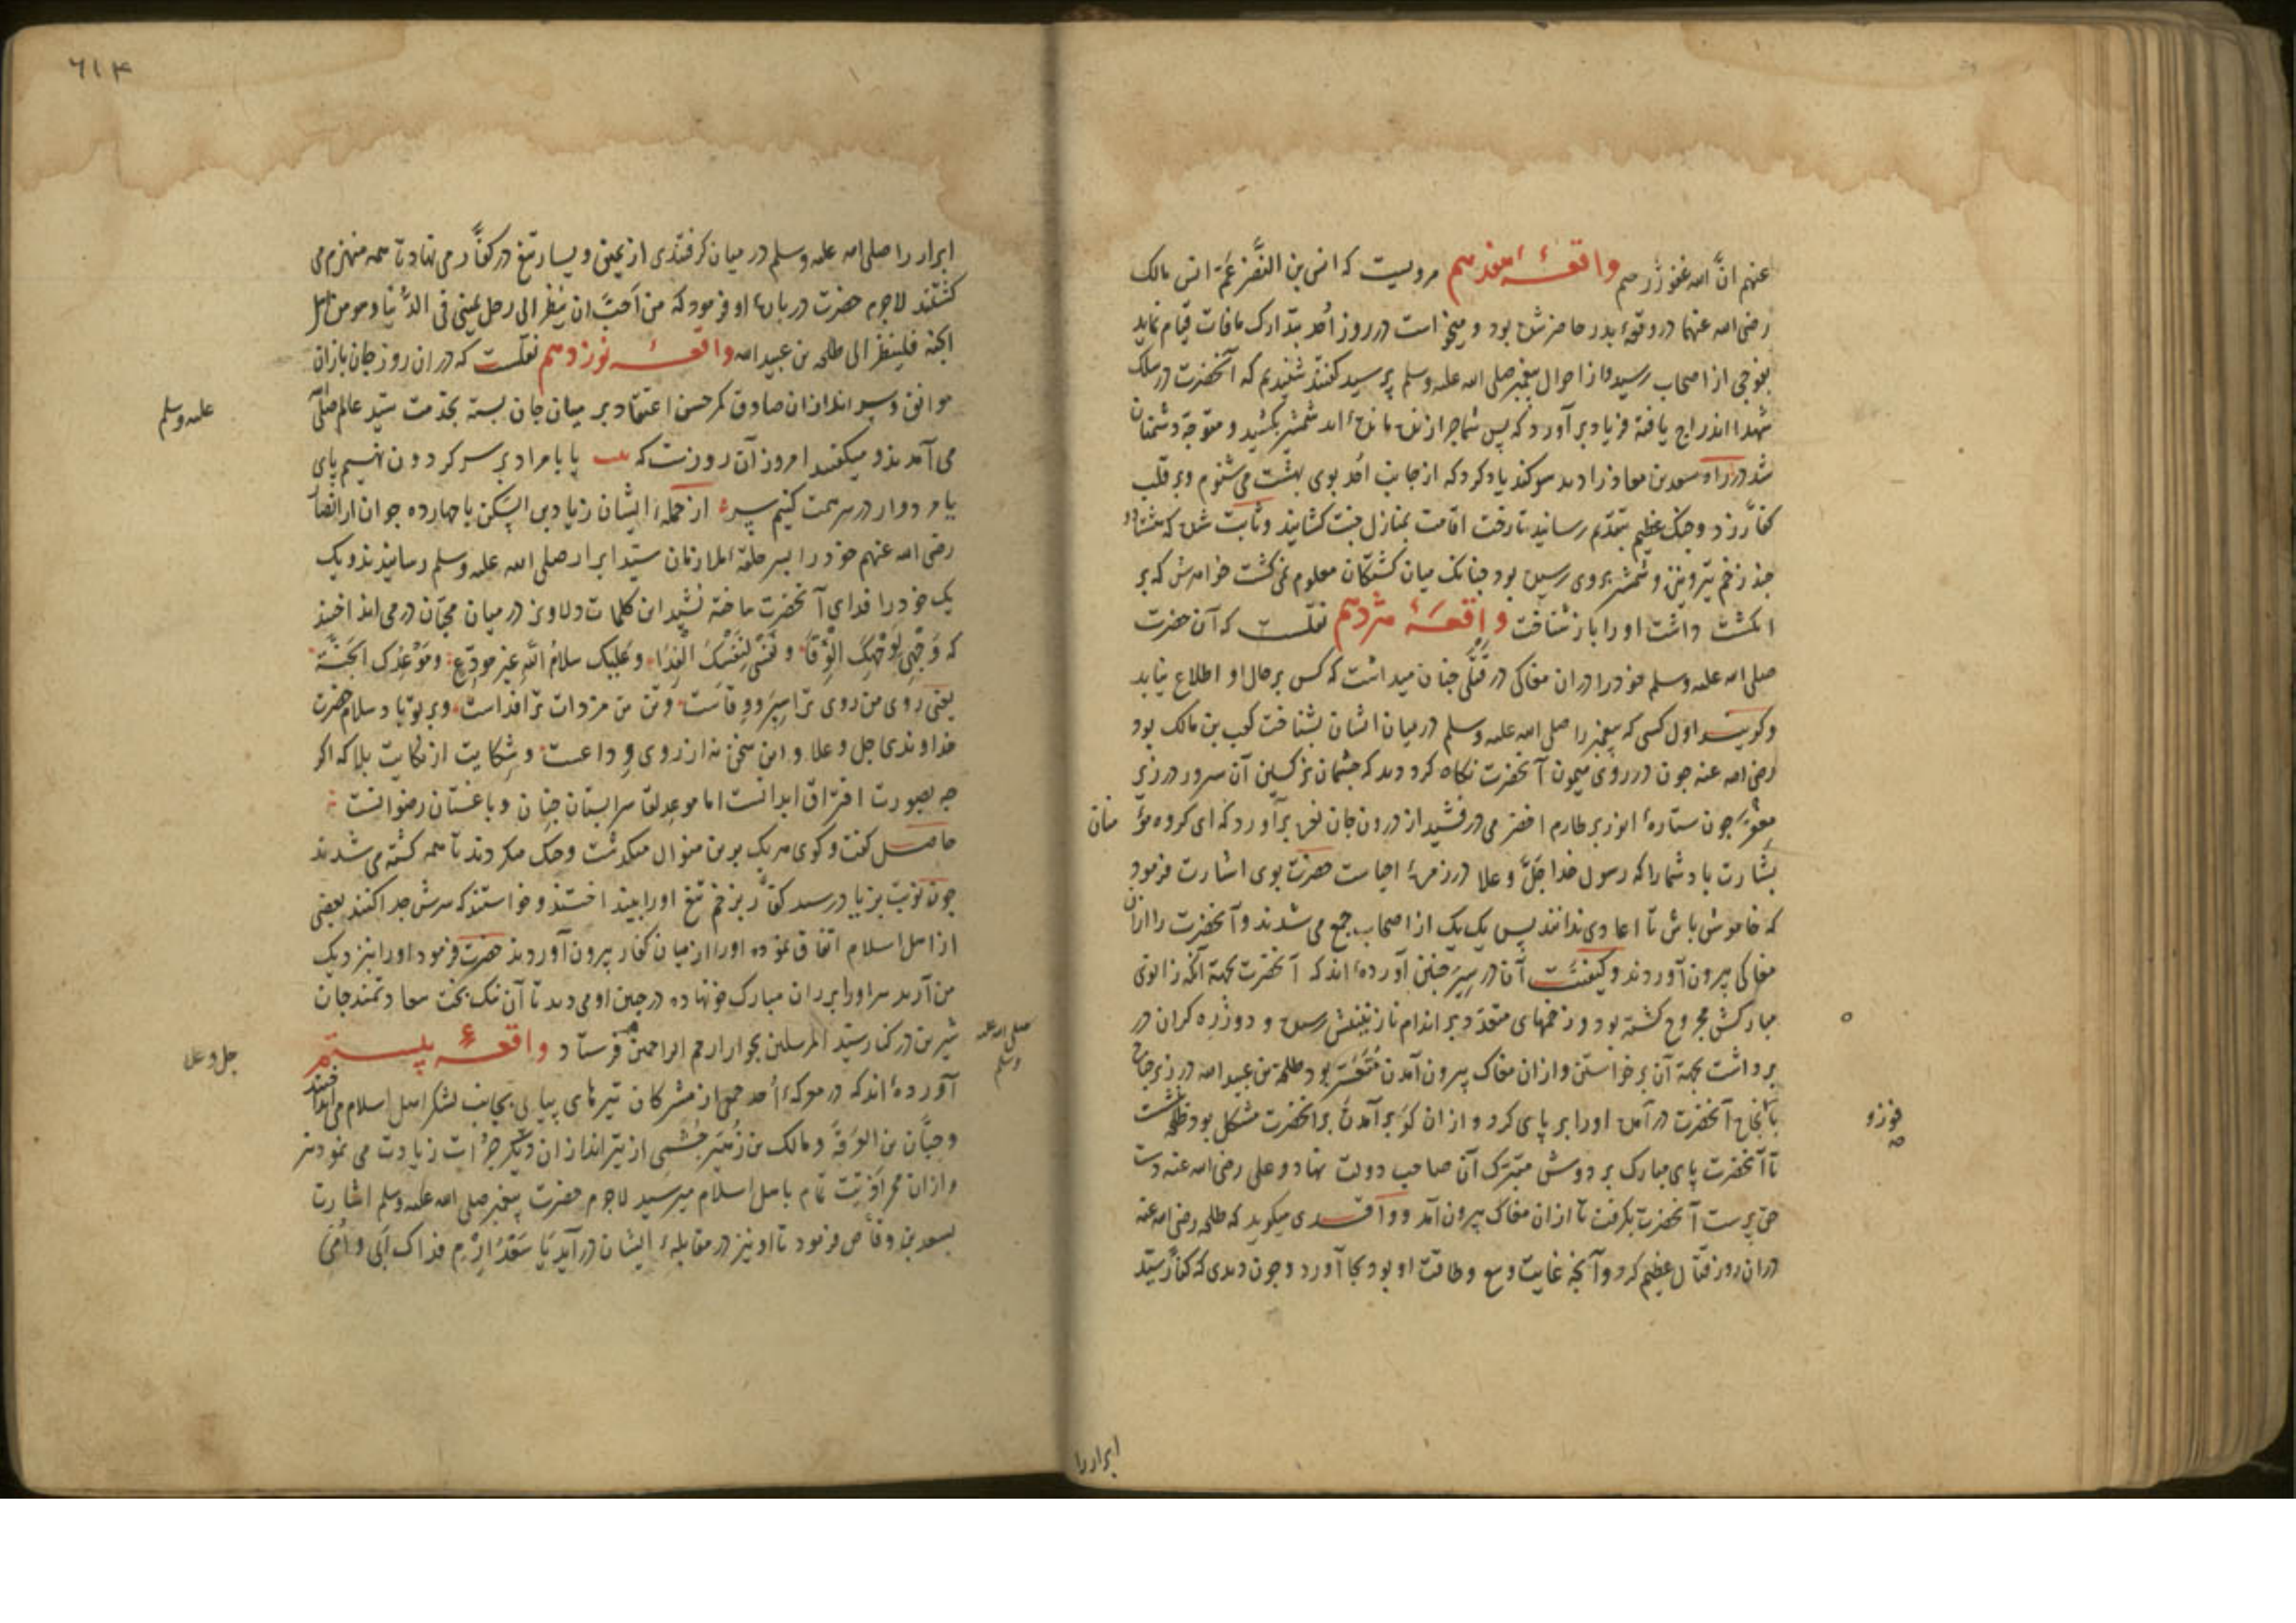 عنهم انّ الله غفور رحیم واقعهٔ هفدهم مرویست که انس بن النَّضر عَمّ انس مالک
رضی الله عنهما در وقعهٔ بدر حاضر نشده بود و میخواست در روز اُحد بتدارک مافات قیام نماید
بفوجی از اصحاب رسید و از احوال پیغمبر صلی الله علیه وسلم پرسید گفتند شنیدیم که آنحضرت در سلک
شهدا اندراج یافته فریاد برآورد که پس شما چرا زنده مانده‌اید شمشیر بکشید و متوجه دشمنان
شد در راه سعد بن معاذ را دید سوکند یاد کرد که از جانب اُحد بوی بهشت می شنوم و بر قلب
کفّار زد و جنک عظیم بتقدیم رسانید تا رخت اقامت بمنازل جنت کشانید و ثابت شده که هشتاد و
چند زخم تیر و نیزه و شمشیر بروی رسیده بود چنانک میان کشتکان معلوم نمی کشت خواهرش که بر
انکشت داشت او را باز شناخت واقعهٔ هژدهم نقلست که آن حضرت
صلی الله علیه وسلم خود را دران مغاکی در قتلی چنان میداشت که کس بر حال او اطلاع نیابد
وکویند اول کسی که پیغمبر را صلی الله علیه وسلم در میان ایشان بشناخت کعب بن مالک بود
رضی الله عنه چون در روی میمون آنحضرت نکاه کرد دید که چشمان نرکسین آن سرور در زیر
مِغْفَر چون ستارهٔ انور بر طارم اخضر می درفشید از درون جان نعره برآورد که ای کروه مؤ منان
بشارت باد شما را که رسول خدا جَلَّ وعلا در زمرهٔ احیاست حضرت بوی اشارت فرمود
که خاموش باش تا اعادی ندانند پس یک یک از اصحاب جمع می شدند و آنحضرت را ازان
مغاکی بیرون آوردند و کیفیت آن در سِیَر چنین آورده‌اند که آنحضرت بجهة آنکه زانوی
مبارکش مجروح کشته بود و زخمهای متعدّد بر اندام نازنینش رسیده و دو زره کران در
برداشت بجهة آن برخواستن و ازان مغاک بیرون آمدن مُتَعَسَّر بود طلحة بن عبید الله در زیر جناح
با نجاح آنحضرت درآمده او را بر پای کرد و از ان کَوْ برآمدن بر آنحضرت مشکل بود طلحه بنشست
تا آنحضرت پای مبارک بر دوش متبرّک آن صاحب دولت نهاد و علی رضی الله عنه دست
حق پرست آنحضرت بکرفت تا از ان مغاک بیرون آمد و واقدی میکوید که طلحه رضی الله عنه
دران روز قتال عظیم کرد و آنچه غایت وسع و طاقت او بود بجا آورد و چون دیدی که کفّار سیّد
فوزو
ابرار را
٦١٤
ابرار را صلی الله علیه وسلم در میان کرفتندی از یمین و یسار تیغ در کفّار می نهاد تا همه منهزم می
کشتند لاجرم حضرت در باره او فرمود که من اَحَبَّ ان ینظر الی رجل یمشی فی الدُّنیا و هو من اهل
الجنة فلینظر الی طلحه بن عبید الله واقعهٔ نوزدهم نقلست که دران روز جان بازان
موافق و سپر اندازان صادق کمر حسن اعتقاد بر میان جان بسته بخدمت سیّد عالم صلّی
علیه وسلم
می آمدند و میکفتند امروز آن روزست که بیت یا با مراد بر سر کردون نهیم پای
یا مردوار در سر همت کنیم سر از جملهٔ ایشان زیاد بن السَّکن با چهارده جوان از انصار
رضی الله عنهم خود را بسر حلقهٔ ملازمان سیّد ابرار صلی الله علیه وسلم رسانیدند و یک
یک خود را فدای آنحضرت ساخته نشید این کلمات دلاویز در میان محبّان در می انداختند
که وَجْهِی لِوَجْهِکَ الْوِقَاءُ وَ نَفْسِی لِنَفْسِکَ الْفِدَاءُ وَعَلَیْکَ سلامُ اللّٰهِ غیرَ مودّعٍ ومَوْعِدُک الجَنَّة
یعنی روی من روی ترا سپر و وقاست و تن من مر ذات ترا فداست و بر تو باد سلام حضرت
خداوندی جل وعلا و این سخن نه از روی وداعست و شکایت از نکایت بلا که اکر
چه بصورت افتراق ابدانست اما موعد لقا سرابستان جنان و باغستان رضوانست
حاصل کفت و کوی هر یک برین منوال میکذشت و جنک میکردند تا همه کشته می شدند
چون نوبت بزیاد رسید کفّار بزخم تیغ او را بینداختند و خواستند که سرش جدا کنند بعضی
از اهل اسلام اتفاق نموده او را از میان کفار بیرون آوردند حضرت فرمود او را بنزدیک
من آرید سر او را بر ران مبارک خود نهاده در جبین او می دید تا آن نیک بخت سعادتمند جان
شیرین در کنار سیّد المرسلین بجوار ارحم الراحمین فرستاد واقعهٔ بیستم
صلی الله علیه وسلم
جل وعلا
آورده‌اند که در معرکهٔ اُحد جمعی از مشرکان تیرهای پیاپی بجانب لشکر اهل اسلام می انداختند
و حبّان بن العَرِقَة و مالک بن زُهَیر جُشَمی از تیراندازان دیکر جرأت زیادت می نمودند
و ازان ممر اذیت تمام باهل اسلام میرسید لاجرم حضرت پیغمبر صلی الله علیه وسلم اشارت
بسعد بن وقاص فرمود تا او نیز در مقابلهٔ ایشان درآید یَا سَعْدُ اِرْمِ فداک اَبی و اُمّی